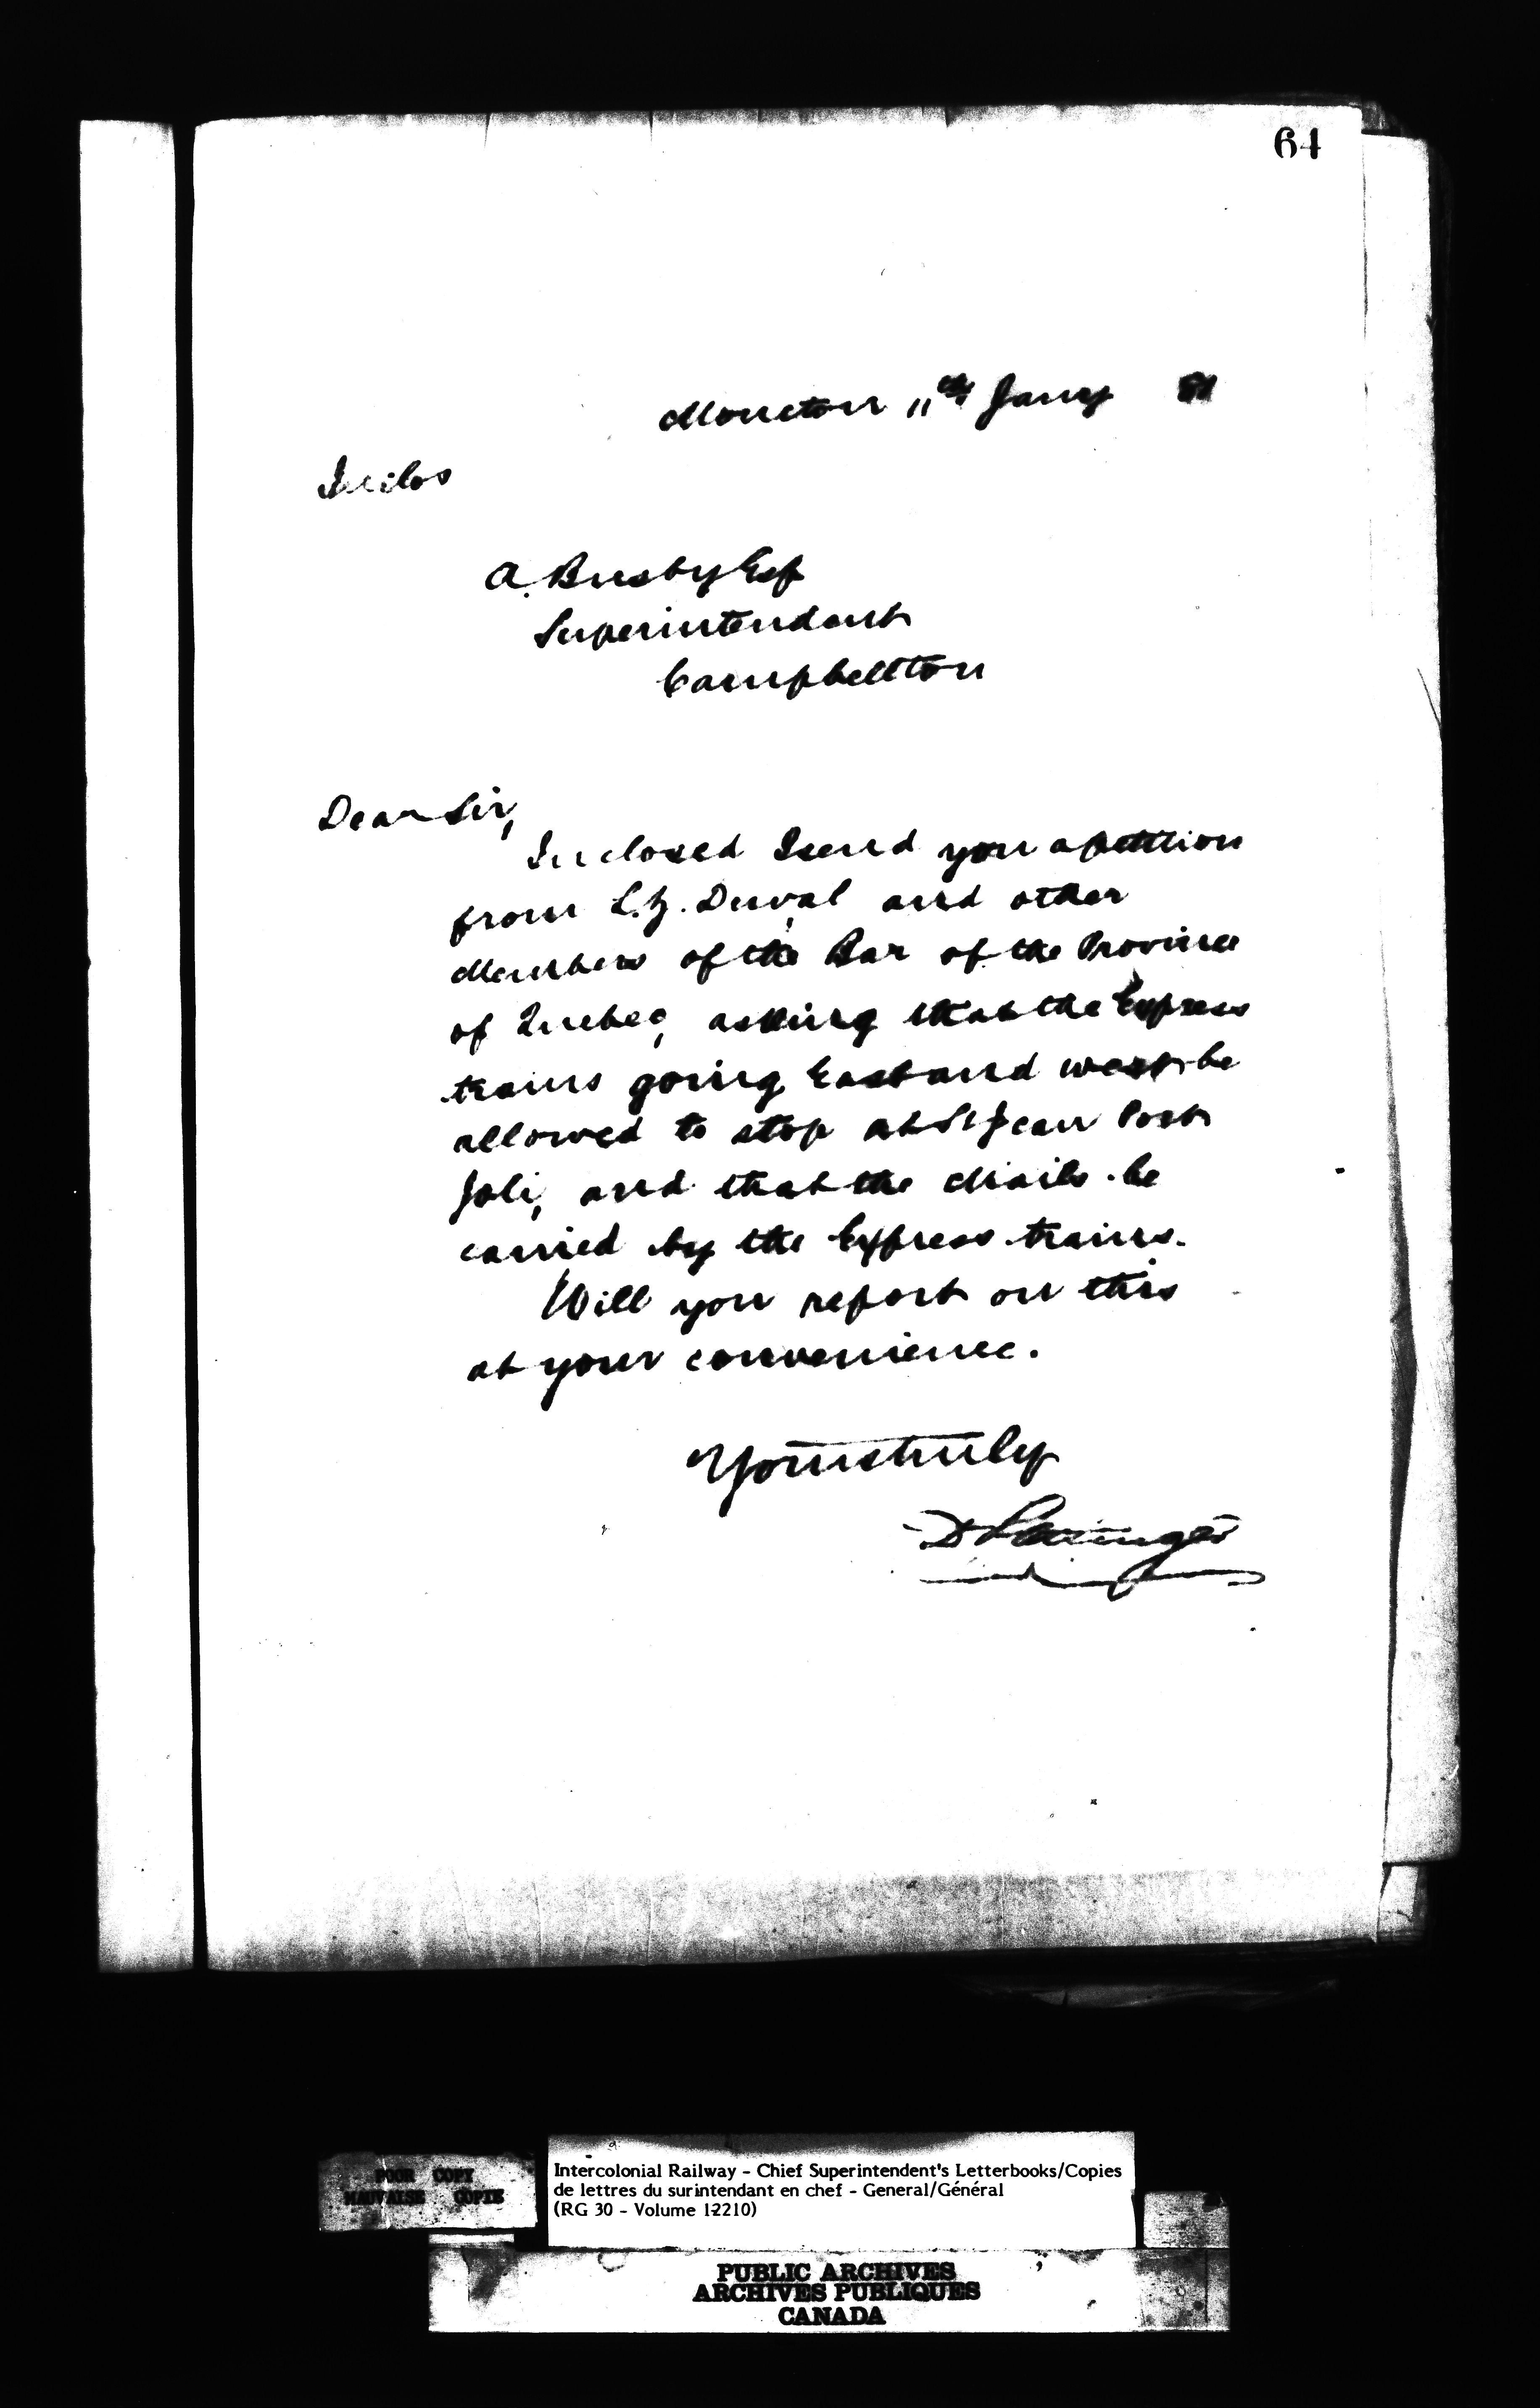 64
Moncton 11th Jany 81
Inclos
A. Busby Esq
Superintendent
Campbellton
Dear Sir,
Inclosed I send you a petition
from L.Z. Duval and other
Members of the Bar of the Province
of Quebec, asking that the Express
trains going East and west be
allowed to stop at St Jean Port
Joli, and that the Mails be
carried by the Express trains.
Will you report on this
at your convenience.
Yours truly
D Pottinger
POOR COPY
MAUVAISE COPIE
Intercolonial Railway - Chief Superintendent's Letterbooks/Copies
de lettres du surintendant en chef - General/Général
(RG 30 - Volume 12210)
PUBLIC ARCHIVES
ARCHIVES PUBLIQUES
CANADA